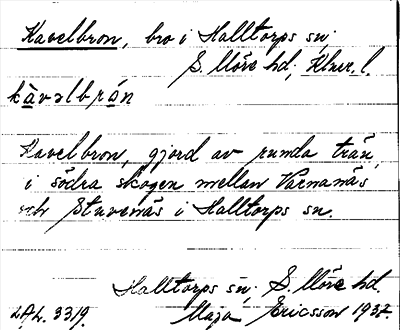 Kavelbron, bro i Halltorps sn;
S. Möre hd; Klmr. l.
kàvəlbrán
Kavelbron, gjord av runda trän,
i södra skogen mellan Värnanäs
och Stuvenäs i Halltorps sn.
Halltorps sn; S. Möre hd.
LAL. 3319. Maja Ericsson 1937.